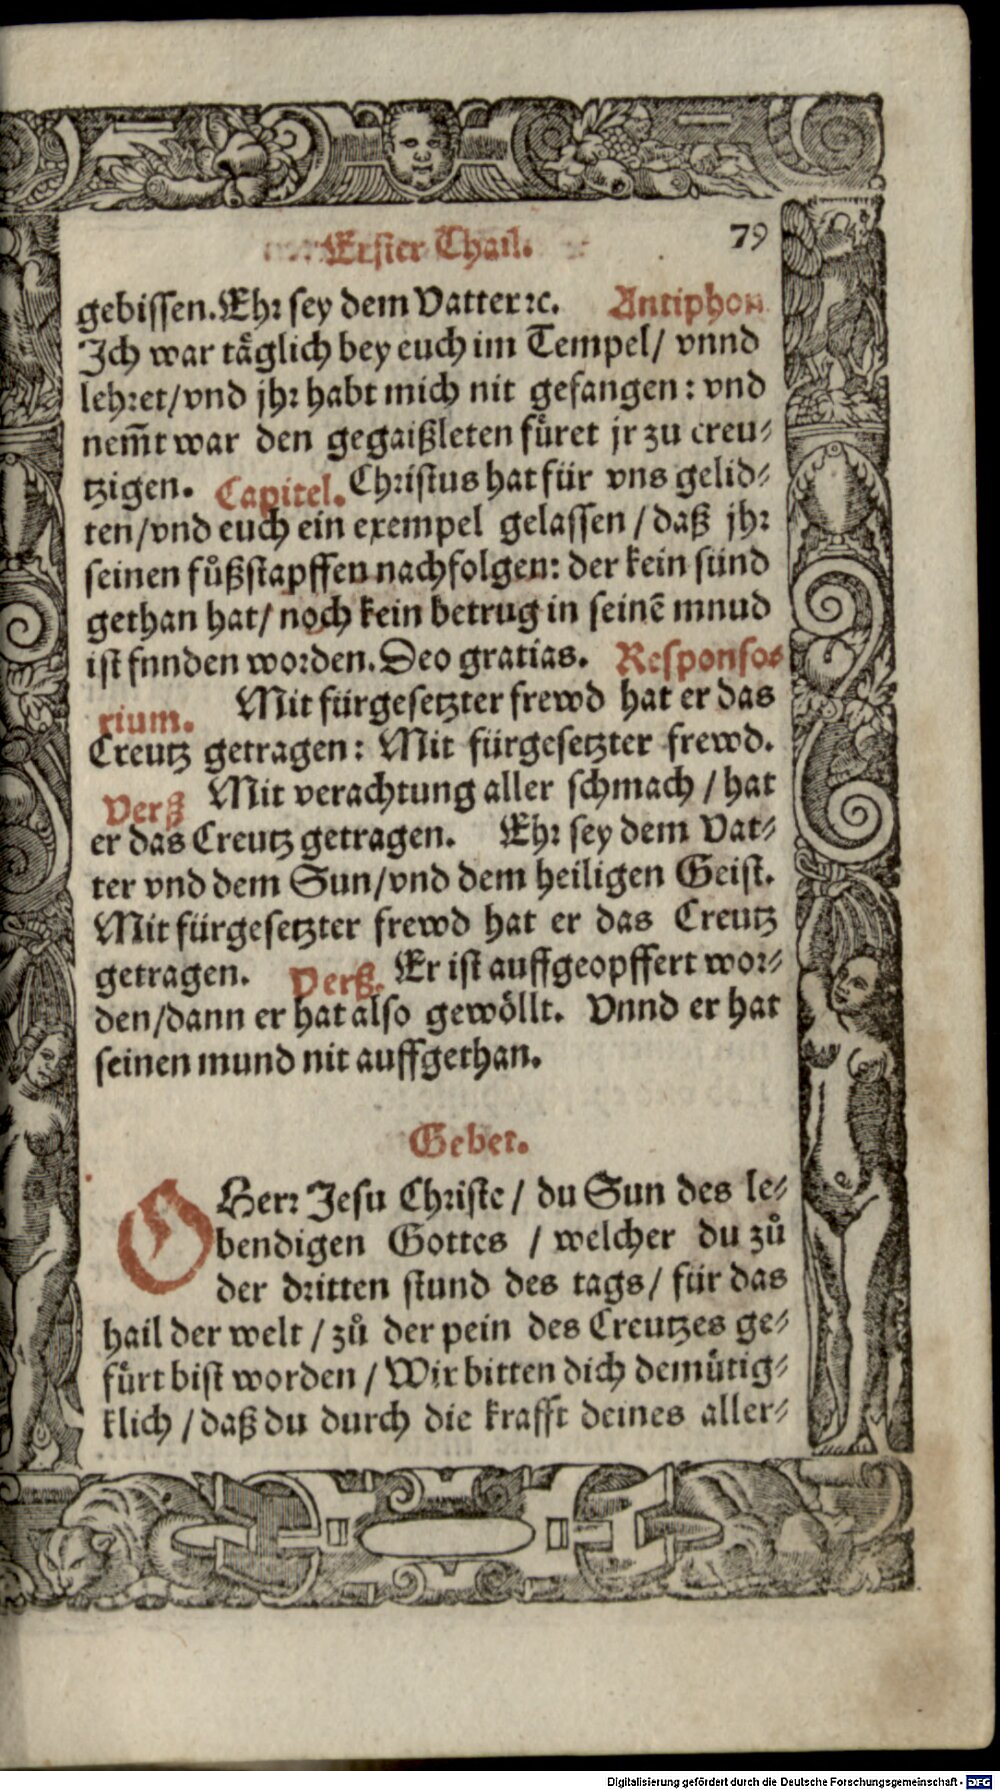 Erster Thail. 79
gebissen. Ehr sey dem Vatter ꝛc. Antiphon
Ich war täglich bey euch im Tempel/ vnnd
lehret/vnd jhr habt mich nit gefangen: vnd
nem̃t war den gegaißleten füret jr zu creu⸗
tzigen. Capitel. Christus hat für vns gelid⸗
ten/vnd euch ein exempel gelassen/daß jhr
seinen fůßstapffen nachfolgen: der kein sünd
gethan hat/ noch kein betrug in seinẽ mnud
ist fnnden worden. Deo gratias. Responso⸗
rium. Mit fürgesetzter frewd hat er das
Creutz getragen: Mit fürgesetzter frewd.
Verß Mit verachtung aller schmach/hat
er das Creutz getragen. Ehr sey dem Vat⸗
ter vnd dem Sun/vnd dem heiligen Geist.
Mit fürgesetzter frewd hat er das Creutz
getragen. Verß. Er ist auffgeopffert wor⸗
den/dann er hat also gewöllt. Vnnd er hat
seinen mund nit auffgethan.
Gebet.
O Herr Jesu Christe/ du Sun des le⸗
bendigen Gottes / welcher du zů
der dritten stund des tags/ für das
hail der welt/zů der pein des Creutzes ge⸗
fürt bist worden/Wir bitten dich demütig⸗
klich/daß du durch die krafft deines aller⸗
Digitalisierung gefördert durch die Deutsche Forschungsgemeinschaft - DFG